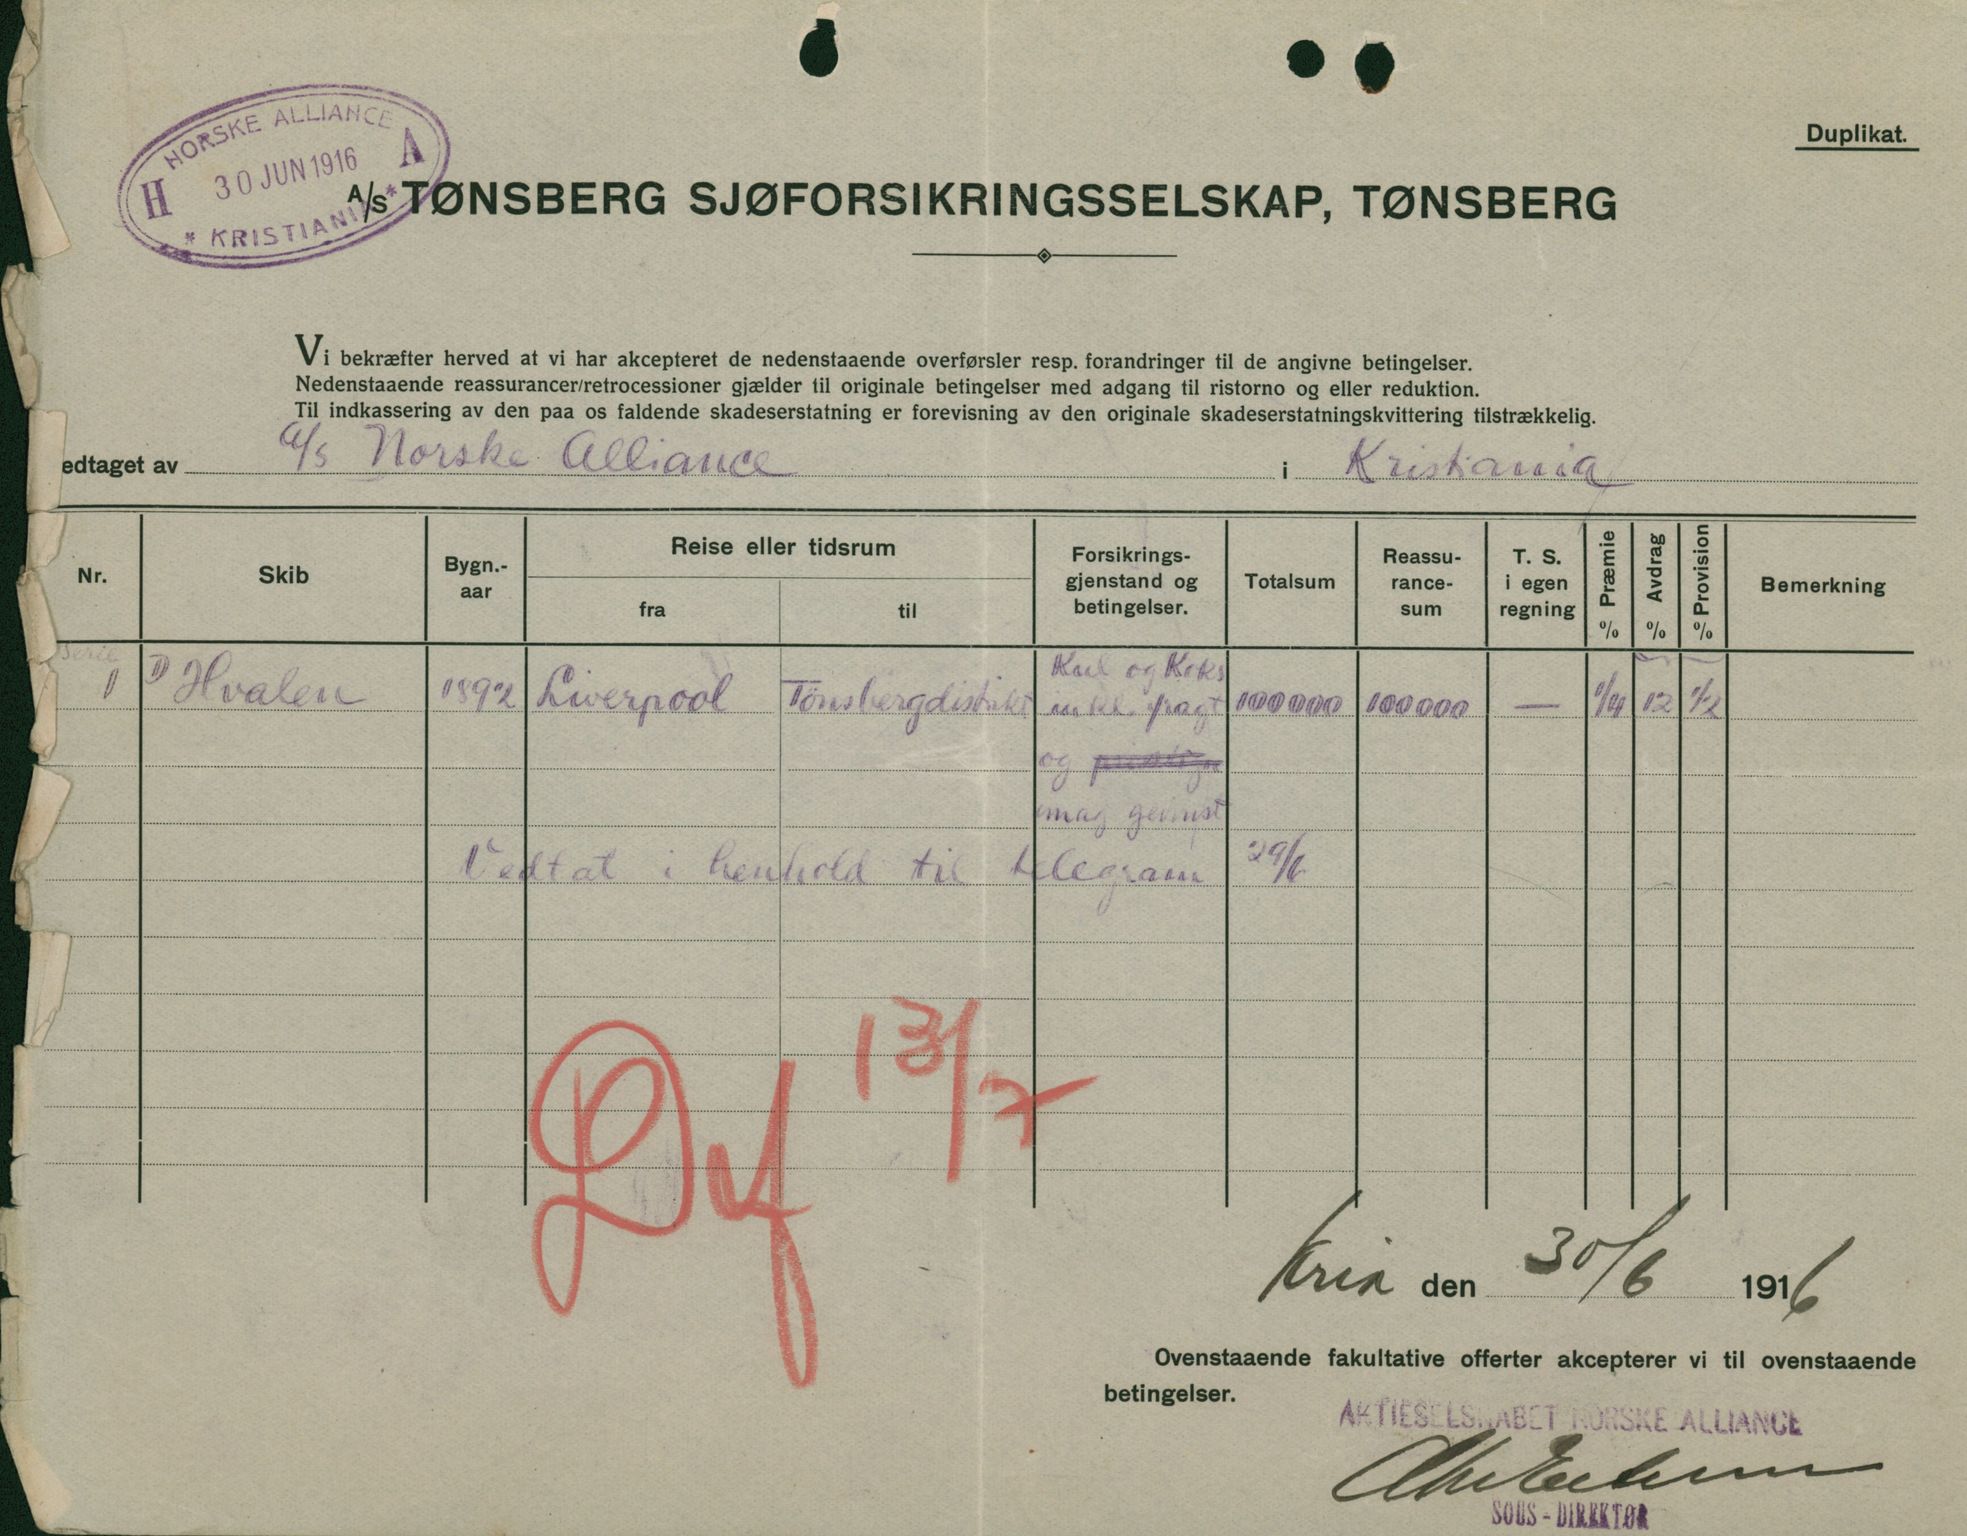 NORSKE ALLIANCE
H 30 JUN 1916 A
* KRISTIANIA *
Duplikat.
A/S TØNSBERG SJØFORSIKRINGSSELSKAP, TØNSBERG
Vi bekræfter herved at vi har akcepteret de nedenstaaende overførsler resp. forandringer til de angivne betingelser.
Nedenstaaende reassurancer/retrocessioner gjælder til originale betingelser med adgang til ristorno og eller reduktion.
Til indkassering av den paa os faldende skadeserstatning er forevisning av den originale skadeserstatningskvittering tilstrækkelig.
edtaget av A/S Norske Alliance i Kristiania
Nr. Skib Bygn.-aar Reise eller tidsrum fra til Forsikrings-gjenstand og betingelser. Totalsum Reassu-rance-sum T. S. i egen regning Præmie % Avdrag % Provision % Bemerkning
Serie
Kul og Koks
1 D Hvalen 1892 Liverpool Tønsbergdistrikt inkl. fragt 100000 100000 — 1/4 12 1/2
og
imag gevinst
Vedtat i henhold til telegram 29/6
Def 13/7
Kria den 30/6 1916
Ovenstaaende fakultative offerter akcepterer vi til ovenstaaende
betingelser.
AKTIESELSKABET NORSKE ALLIANCE
SOUS-DIREKTØR